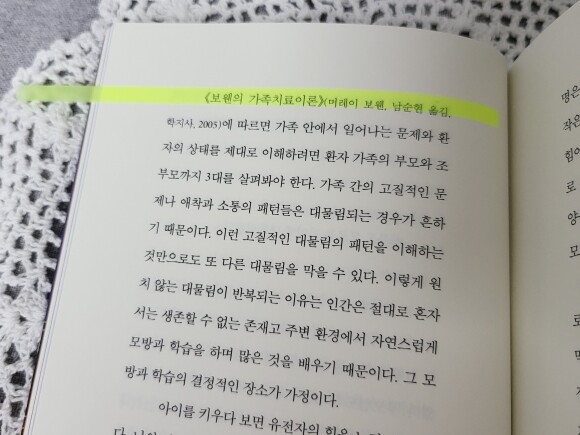 《보웬의 가족치료이론》(머레이 보웬, 남순현 옮김,
학지사, 2005)에 따르면 가족 안에서 일어나는 문제와 환
자의 상태를 제대로 이해하려면 환자 가족의 부모와 조
부모까지 3대를 살펴봐야 한다. 가족 간의 고질적인 문
제나 애착과 소통의 패턴들은 대물림되는 경우가 흔하
기 때문이다. 이런 고질적인 대물림의 패턴을 이해하는
것만으로도 또 다른 대물림을 막을 수 있다. 이렇게 원
치 않는 대물림이 반복되는 이유는 인간은 절대로 혼자
서는 생존할 수 없는 존재고 주변 환경에서 자연스럽게
모방과 학습을 하며 많은 것을 배우기 때문이다. 그 모
방과 학습의 결정적인 장소가 가정이다.
아이를 키우다 보면 유전자의 힘은
명은
작은
힘이
로
양
모
로